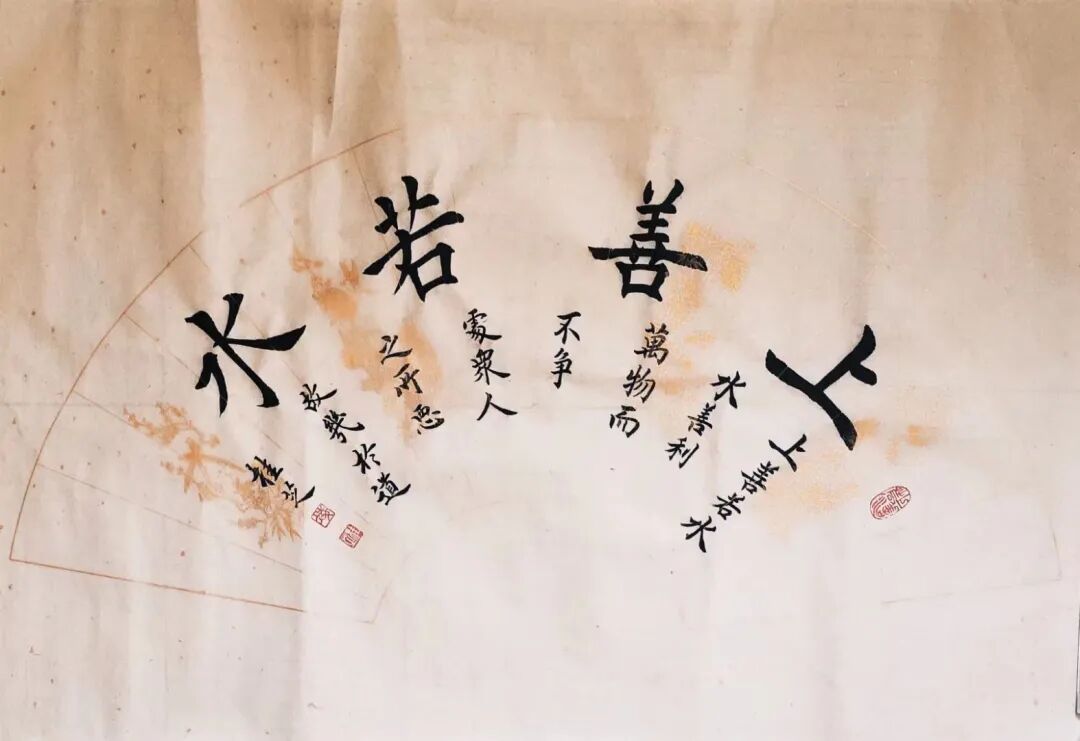 上善若水
上善若水
水善利
萬物而
不争
處衆人
之所惡
故幾於道
桂芝